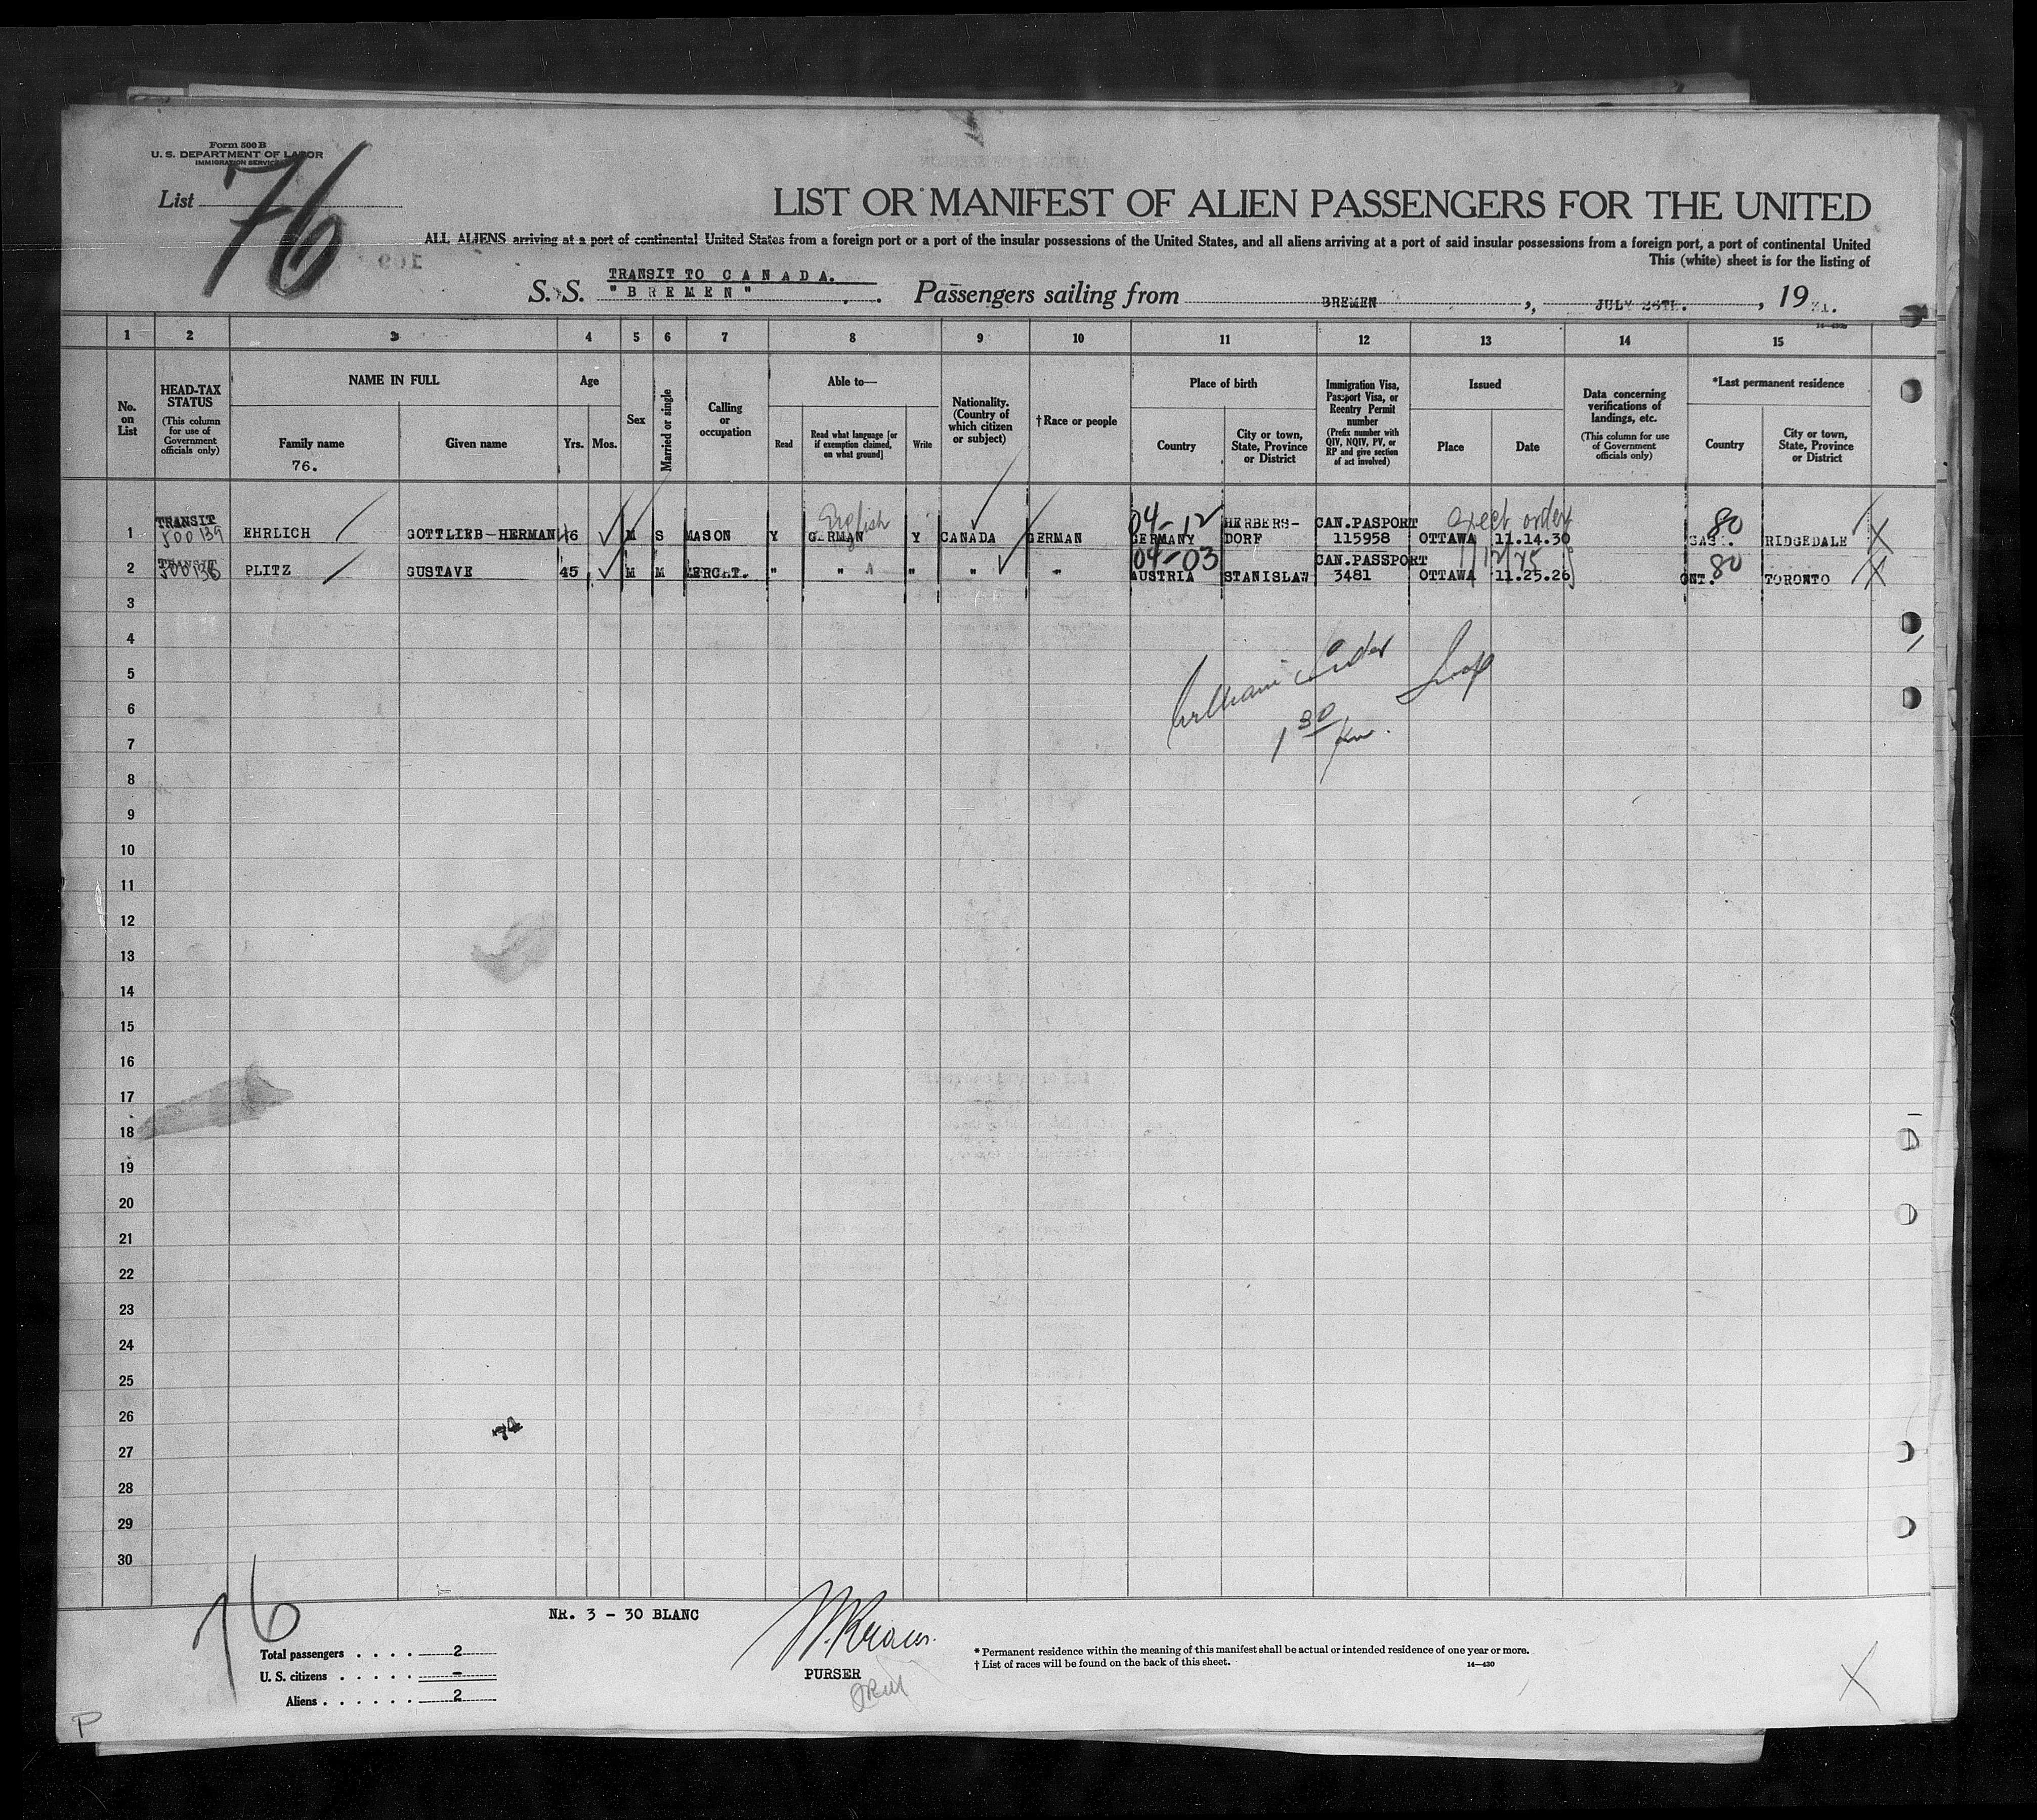 Form 500 B
U. S. DEPARTMENT OF LABOR
IMMIGRATION SERVICE
List 76
LIST OR MANIFEST OF ALIEN PASSENGERS FOR THE UNITED
ALL ALIENS arriving at a port of continental United States from a foreign port or a port of the insular possessions of the United States, and all aliens arriving at a port of said insular possessions from a foreign port, a port of continental United
This (white) sheet is for the listing of
TRANSIT TO CANADA.
S. S. "BREMEN" Passengers sailing from BREMEN, JULY 26TH., 1931.
1 2 3 4 5 6 7 8 9 10 11 12 13 14 15
No. on List
HEAD-TAX STATUS
(This column for use of Government officials only)
NAME IN FULL
Family name
76.
Given name
Age
Yrs. Mos.
Sex
Married or single
Calling or occupation
Able to—
Read
Read what language [or if exemption claimed, on what ground]
Write
Nationality. (Country of which citizen or subject)
†Race or people
Place of birth
Country
City or town, State, Province or District
Immigration Visa, Passport Visa, or Reentry Permit number
(Prefix number with QIV, NQIV, PV, or RP and give section of act involved)
Issued
Place
Date
Data concerning verifications of landings, etc.
(This column for use of Government officials only)
*Last permanent residence
Country
City or town, State, Province or District
TRANSIT English 04-12 HERBERS- CAN.PASPORT 80
1 500139 EHRLICH GOTTLIEB-HERMAN 46 M S MASON Y GERMAN Y CANADA GERMAN GERMANY DORF 115958 OTTAWA 11.14.30 RIDGEDALE X
TRANSIT 04-03 CAN.PASSPORT 80
2 PLITZ GUSTAVE 45 M M " " " " " AUSTRIA STANISLAW 3481 OTTAWA 11.25.26 ONT. TORONTO X
3
4
5
6
7
8
9
10
11
12
13
14
15
16
17
18
19
20
21
22
23
24
25
26
27
28
29
30
1 30
NR. 3 - 30 BLANC
76
Total passengers . . . . 2
U. S. citizens . . . . . –
Aliens . . . . . . 2
PURSER
* Permanent residence within the meaning of this manifest shall be actual or intended residence of one year or more.
† List of races will be found on the back of this sheet.
14—430
P
X